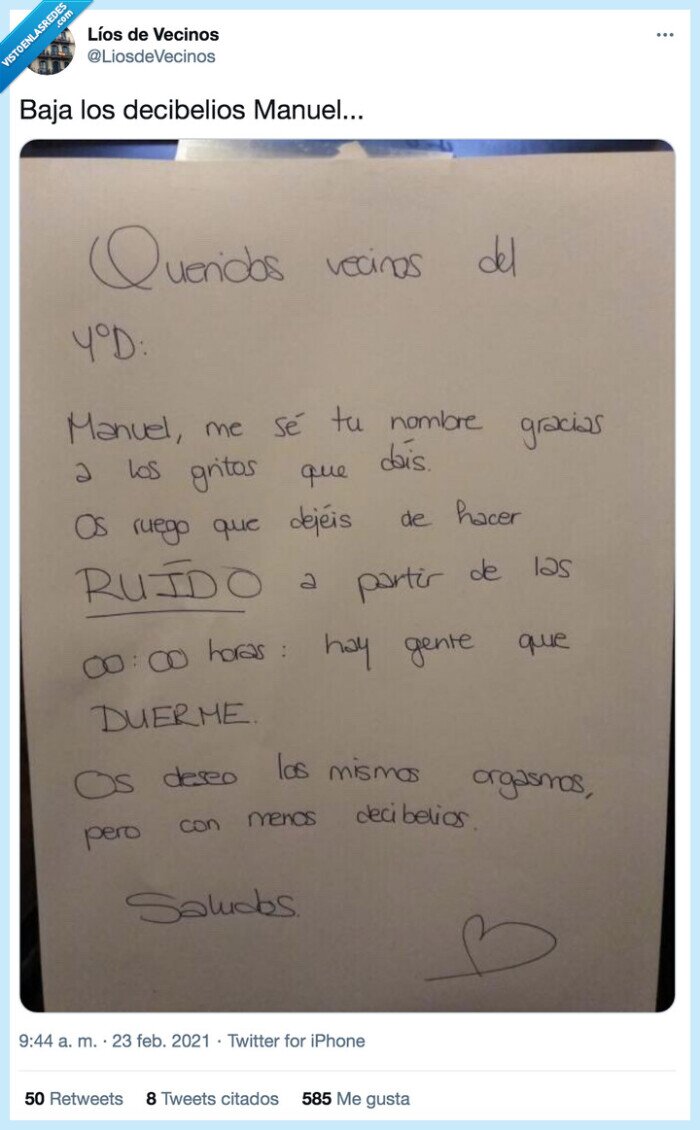 VISTOENLASREDES
.com
Líos de Vecinos
@LiosdeVecinos
Baja los decibelios Manuel...
Queridos vecinos del
4ºD:
Manuel, me sé tu nombre gracias
a los gritos que dáis.
Os ruego que dejéis de hacer
RUÍDO a partir de las
00:00 horas: hay gente que
DUERME.
Os deseo los mismos orgasmos,
pero con menos decibelios.
Saludos.
9:44 a. m. · 23 feb. 2021 · Twitter for iPhone
50 Retweets 8 Tweets citados 585 Me gusta